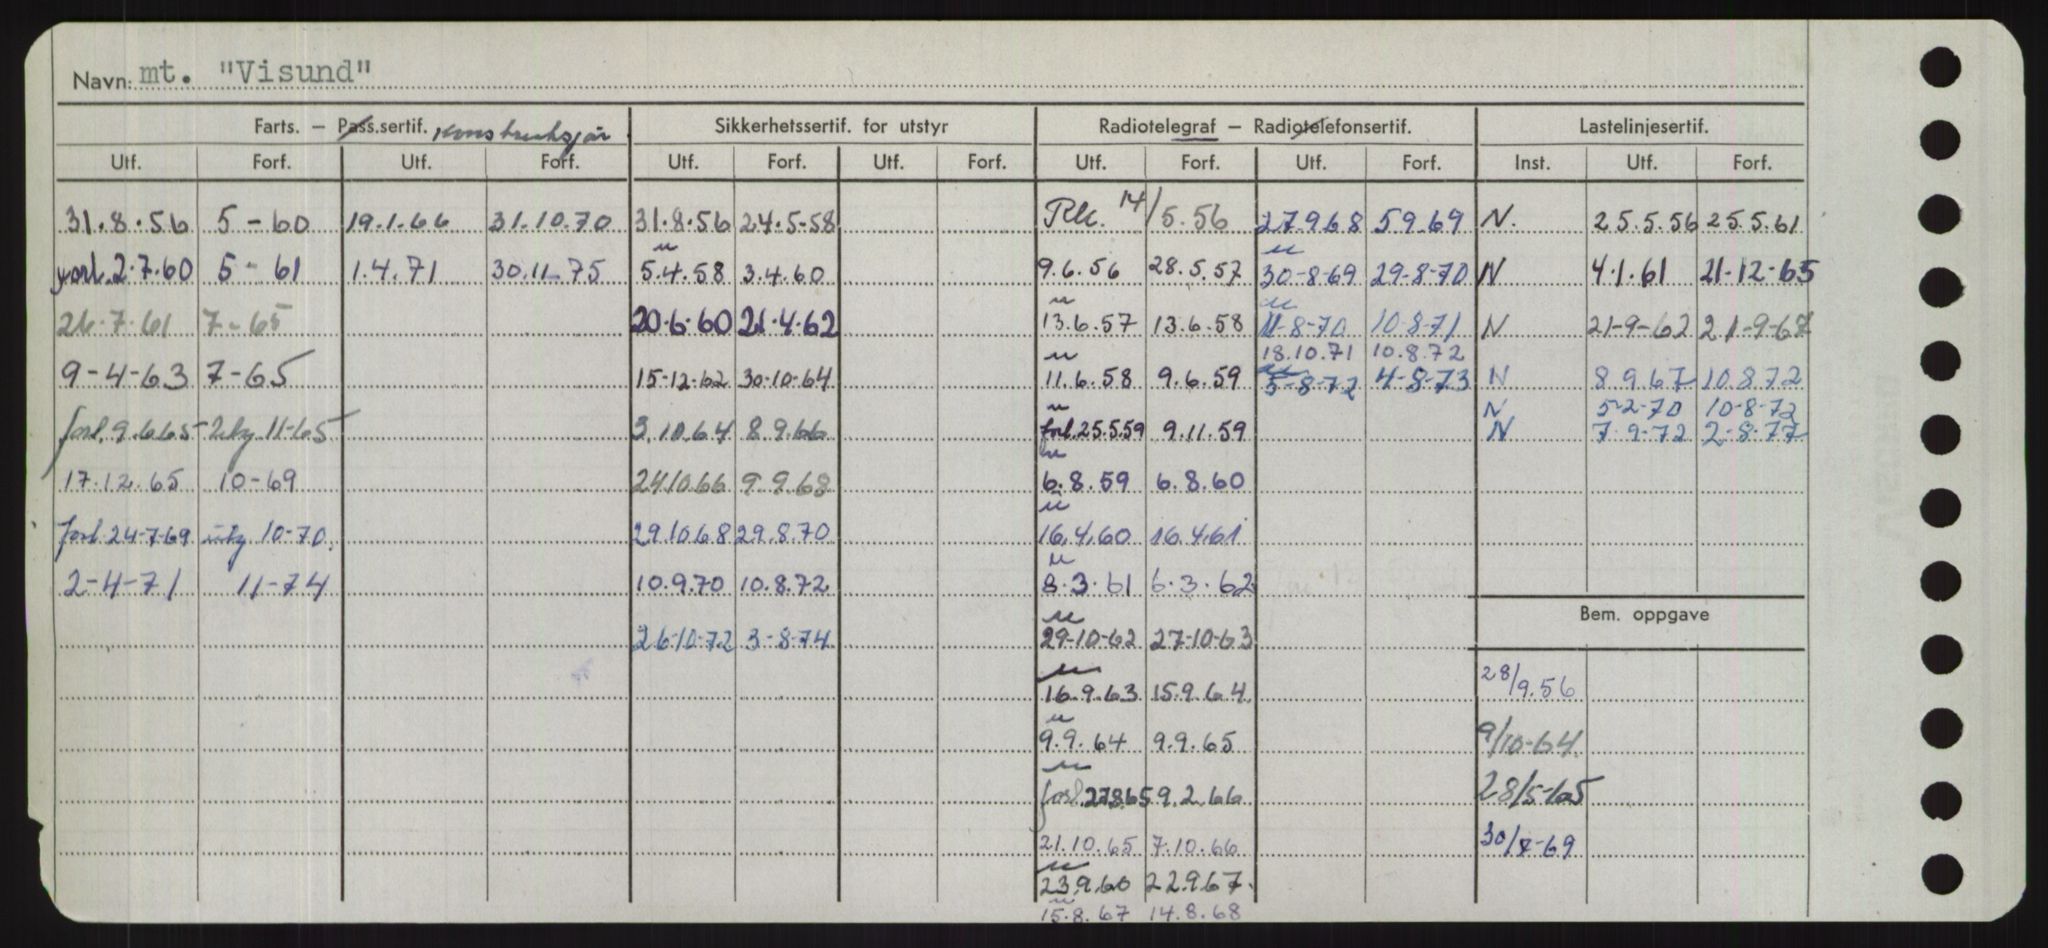 Navn: mt. "Visund"
Farts. – Pass.sertif. Sikkerhetssertif. for utstyr Radiotelegraf – Radiotelefonsertif. Lastelinjesertif.
Utf. Forf. Utf. Forf. Utf. Forf. Utf. Forf. Utf. Forf. Utf. Forf. Inst. Utf. Forf.
31.8.56 5-60 19.1.66 31.10.70 31.8.56 24.5-58 14/5.56 27.9.68 5.9.69 N. 25.5.56 25.5.61
forl. 2.7.60 5-61 1.4.71 30.11.75 5.4.58 3.4.60 9.6.56 28.5.57 30-8-69 29-8-70 N 4.1.61 21-12-65
26-7-61 7-65 20-6-60 21-4-62 13.6.57 13.6.58 11-8-70 10-8-71 N 21-9-62 21-9-67
18.10.71 10.8.72
9-4-63 7-65 15-12-62 30-10-64 11.6.58 9.6.59 5-8-72 4-8-73 N 8.9.67 10.8.72
N 5-2-70 10-8-72
forl. 9.6.65 11-65 3.10.64 8.9.66 forl. 25.5.59 9.11.59 N 7-9-72 2-8-77
17.12.65 10-69 24.10.66 9.9.68 6.8.59 6.8.60
forl. 24-7-69 10-70 29.10.68 29.8.70 16.4.60 16.4.61
2-4-71 11-74 10.9.70 10.8.72 8.3.61 6.3.62
Bem. oppgave
26-10-72 3-8-74 29-10-62 27-10-63
16.9.63 15.9.64 28/9.56
9.9.64 9.9.65 9/10-64
forl. 27.8.65 9.2.66 28/5-65
21.10.65 7.10.66 30/7-69
23.9.66 22.9.67
15.8.67 14.8.68